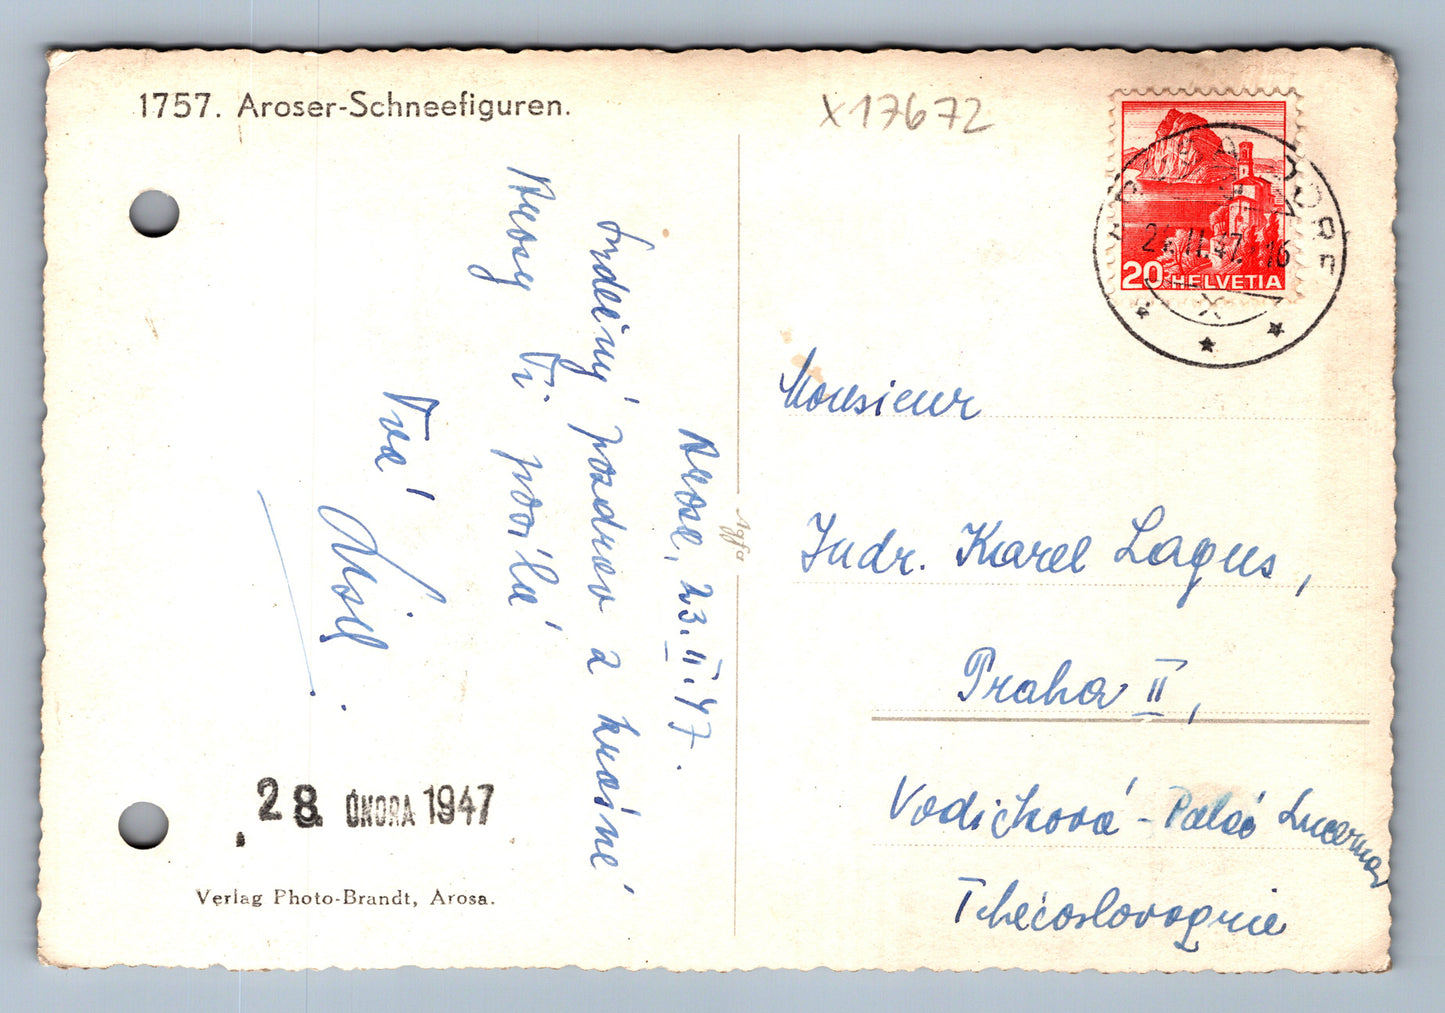 1757. Aroser-Schneefiguren.
X17672
20 HELVETIA
24.II.47.-16
Arosa, 23.II.47.
Srdečný pozdrav z krásné
Arosy Ti posílá
Tvá
Monsieur
Judr. Karel Lagus,
Praha II,
Vodičková - Palác Lucerna
Tchécoslovaquie
Agfa
28. ÚNORA 1947
Verlag Photo-Brandt, Arosa.